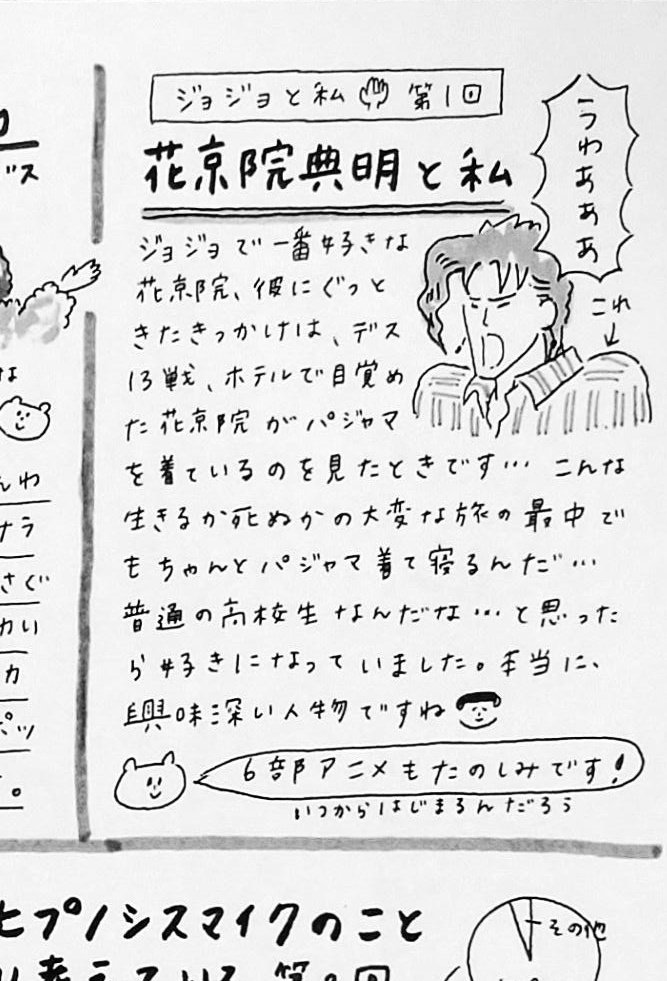 ジョジョと私 第1回
花京院典明と私
うわあああ
これ
ジョジョで一番好きな
花京院、彼にぐっと
きたきっかけは、デス
13戦、ホテルで目覚め
た花京院がパジャマ
を着ているのを見たときです… こんな
生きるか死ぬかの大変な旅の最中で
もちゃんとパジャマ着て寝るんだ…
普通の高校生なんだな…と思った
ら好きになっていました。本当に、
興味深い人物ですね
6部アニメもたのしみです!
いつからはじまるんだろう
ス
な
んわ
ナラ
さぐ
カい
カ
ポッ
。
ヒプノシスマイクのこと
その他